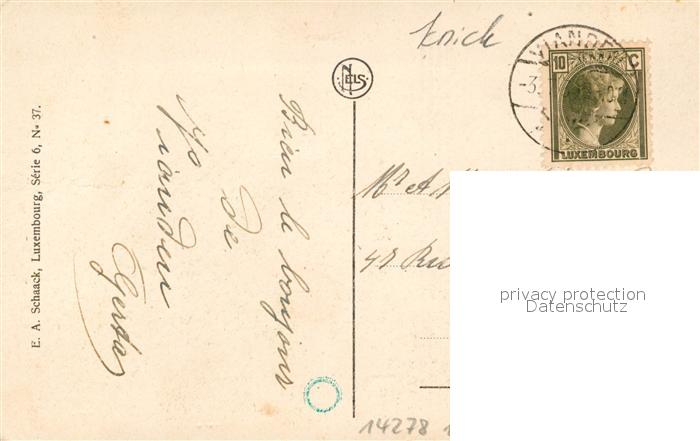 Krich
VIANDEN
-3.
10 C
LUXEMBOURG
NELS
E. A. Schaack, Luxembourg, Série 6, No 37.
Bien le bonjour
de
Vianden
Gerda
Mr A
42 Rue
privacy protection
Datenschutz
14278